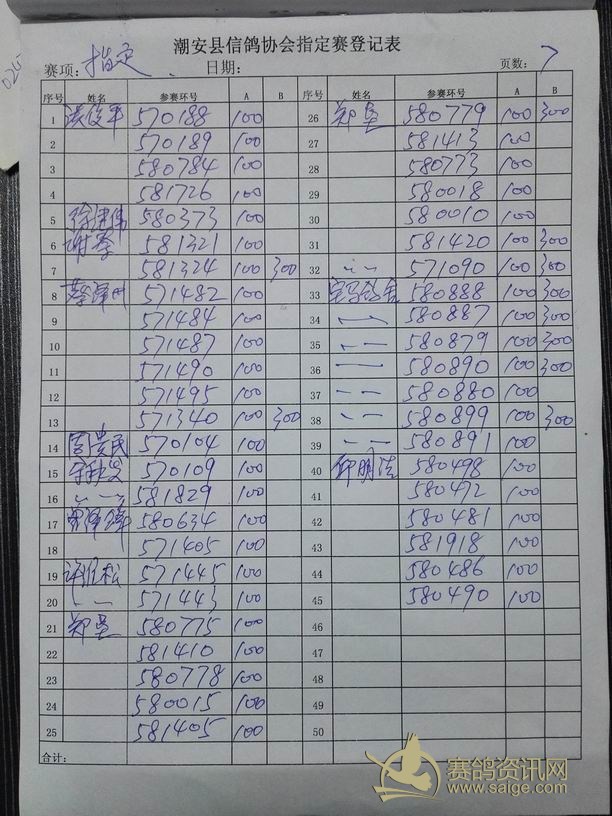 潮安县信鸽协会指定赛登记表
赛项：指定 日期： 页数：7
序号 姓名 参赛环号 A B 序号 姓名 参赛环号 A B
1 570188 100 26 郑 580779 100 300
2 570189 100 27 581413 100
3 580784 100 28 580773 100
4 581726 100 29 580018 100
5 580373 100 30 580010 100
6 谢 581321 100 31 581420 100 300
7 581324 100 300 32 〃 571090 100 300
8 571482 100 33 580888 100 300
9 571484 100 34 〃 580887 100 300
10 571487 100 35 〃 580879 100 300
11 571490 100 36 〃 580890 100 300
12 571495 100 37 〃 580880 100
13 571340 100 300 38 〃 580899 100 300
14 570104 100 39 〃 580891 100
15 570109 100 40 580498 100
16 〃 581829 100 41 580472 100
17 580634 100 42 580481 100
18 571405 100 43 581918 100
19 许 松 571445 100 44 580486 100
20 〃 571443 100 45 580490 100
21 郑 580775 100 46
22 581410 100 47
23 580778 100 48
24 580015 100 49
25 581405 100 50
合计：
赛鸽资讯网
www.saige.com